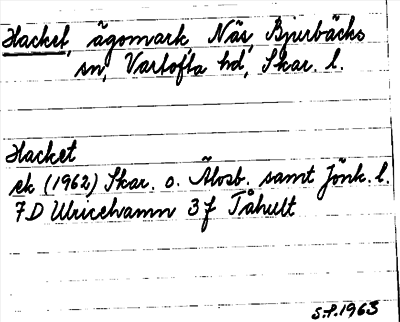 Hacket, ägomark, Näs, Bjurbäcks
sn, Vartofta hd, Skar. l.
Hacket
ek (1962) Skar. o. Älvsb. samt Jönk. l.
7D Ulricehamn 3f Tåhult
S.P. 1963